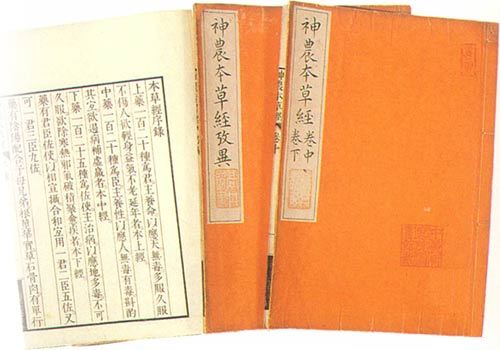 神農本草經 卷中
卷下
神農本草經攷異
本草經序錄
上藥一百二十種為君主養命以應天無毒多服久服
不傷人欲輕身益氣不老延年者本上經
中藥一百二十種為臣主養性以應人無毒有毒斟酌
其宜欲遏病補虛羸者本中經
下藥一百二十五種為佐使主治病以應地多毒不可
久服欲除寒熱邪氣破積聚愈疾者本下經
藥有君臣佐使以相宣攝合和宜用一君二臣五佐又
可一君三臣九佐
藥有陰陽配合子母兄弟根莖華實草石骨肉有單行